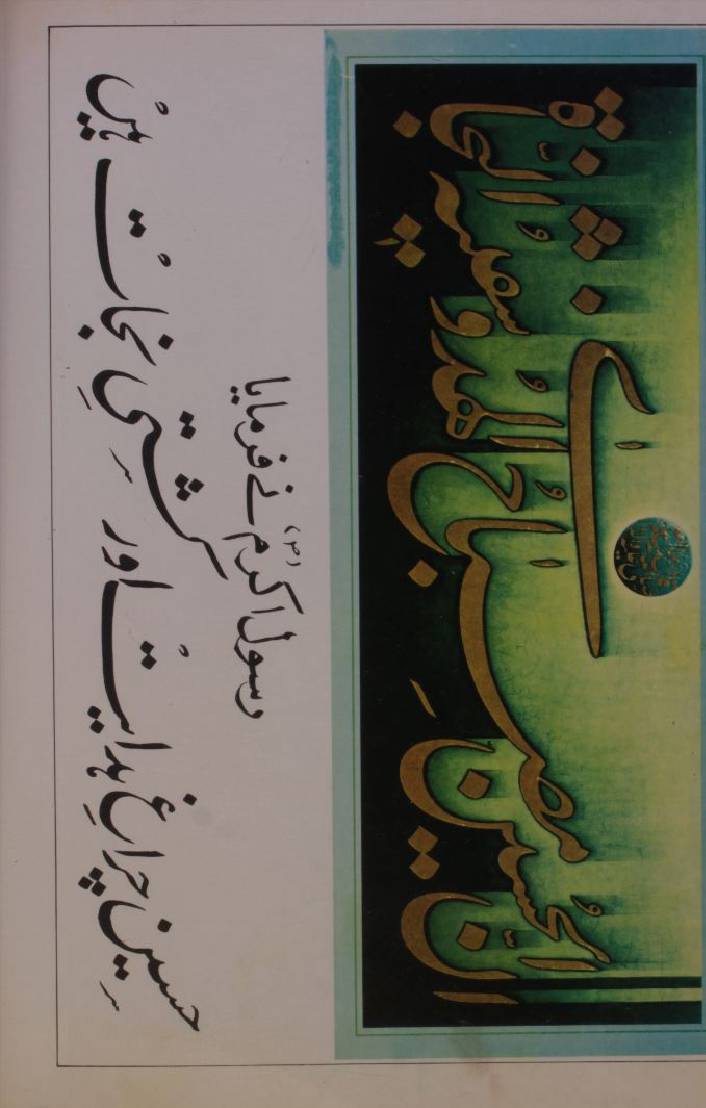 ان الحسین مصباح الھدی و سفینۃ النجاۃ
رسول اکرم (ص) نے فرمایا
حسین چراغِ ہدایت اور کشتیِ نجات ہیں